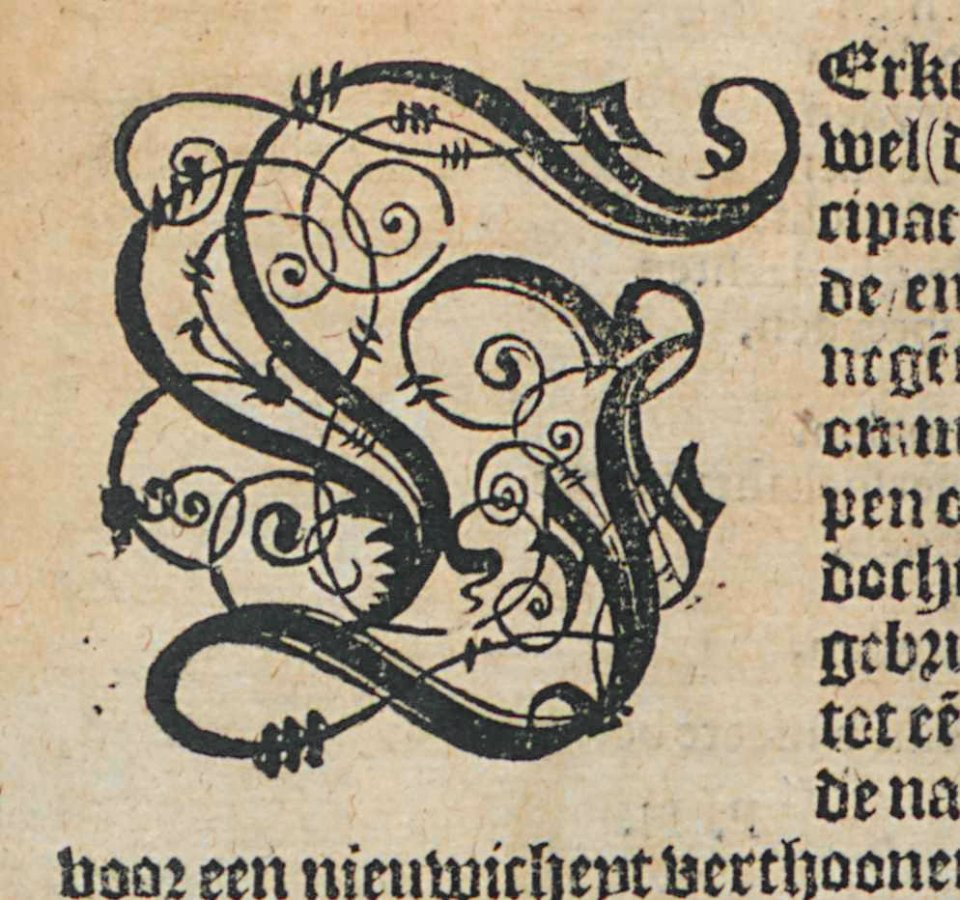 Erke
wel (d
cipat
de/ en
negē
om in
pen o
docht
gebru
tot eē
de na
voor een nieuwicheyt verthoonen